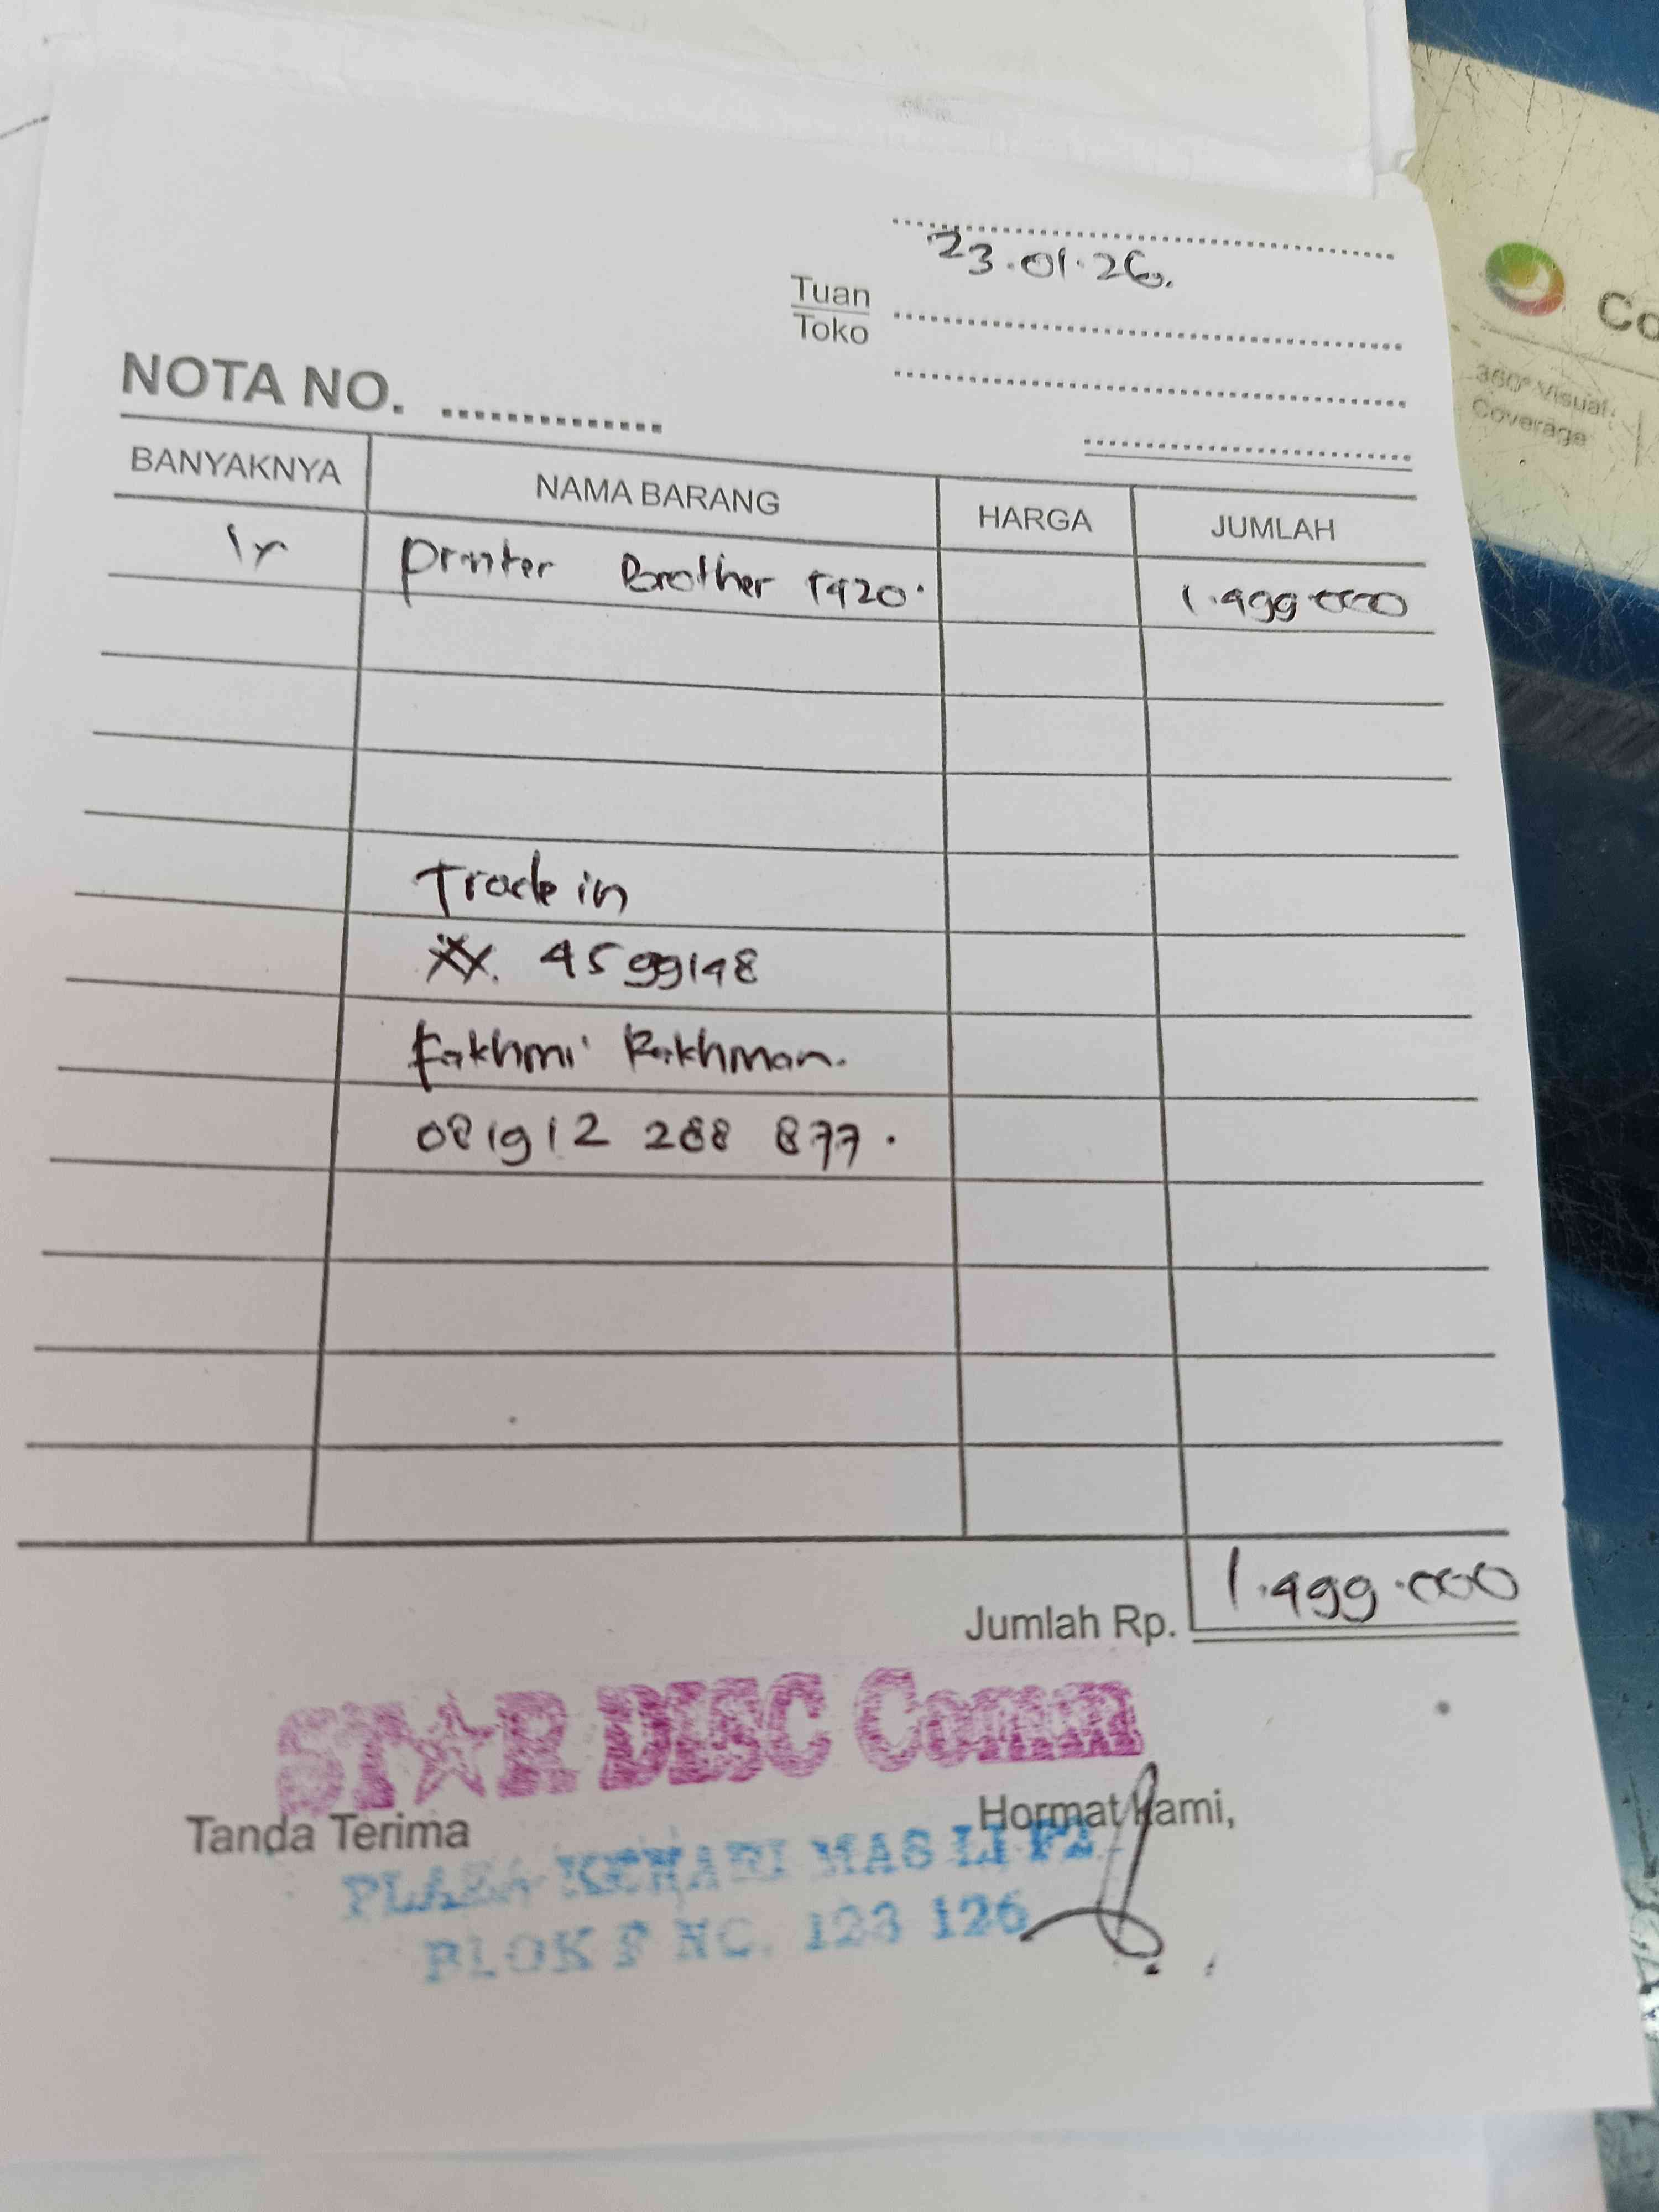 23.01.26.
Tuan
Toko
NOTA NO.
BANYAKNYA NAMA BARANG HARGA JUMLAH
Printer Brother T420. 1.499.000
Trade in
XX. 4599148
Fakhmi Rakhman.
081912 288 877.
Jumlah Rp. 1.499.000
STAR DISC Comm
Tanda Terima Hormat Kami,
PLAZA KENARI MAS LT F2
BLOK F NO. 123 126
Co
360° Visual
Coverage